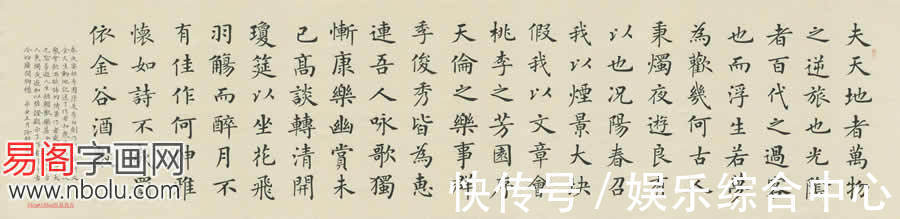 夫天地者萬物
之逆旅也光陰
者百代之過客
也而浮生若夢
為歡幾何古人
秉燭夜遊良有
以也況陽春召
我以煙景大塊
假我以文章會
桃李之芳園序
天倫之樂事群
季俊秀皆為惠
連吾人咏歌獨
慚康樂幽賞未
已高談轉清開
瓊筵以坐花飛
羽觴而醉月不
有佳作何伸雅
懷如詩不罰
依金谷酒
易阁字画网
www.nbolu.com
快传号/娱乐综合中心